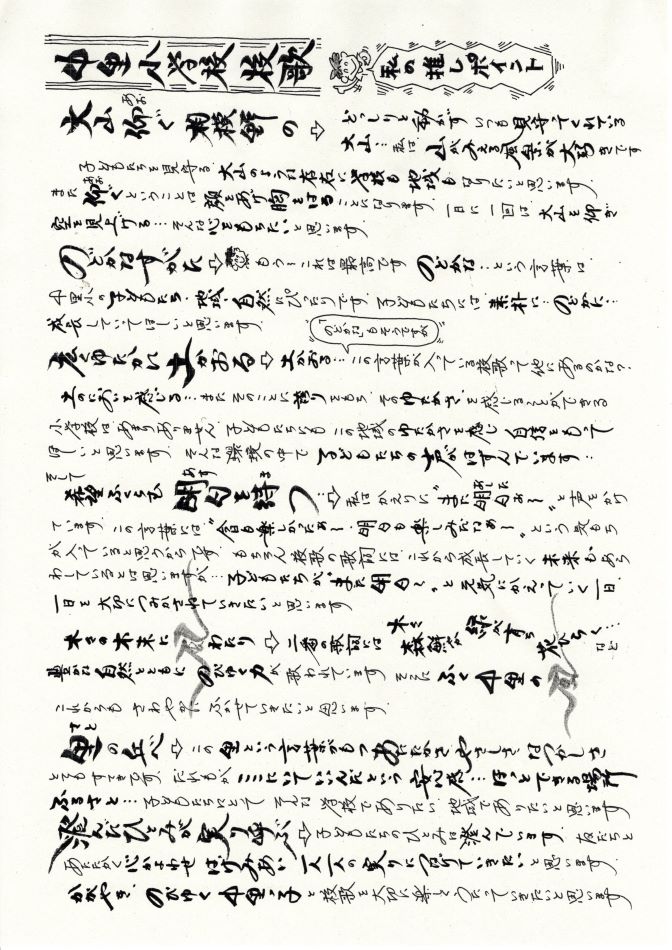 中里小学校 校歌
私の推しポイント
大山仰ぐ 相模野の ⇨
あお
どっしりと動かず いつも見守ってくれている
大山… 私は 山がみえる風景が大好きです
子どもたちを見守る 大山のように 存在に 学校も 地域も なりたいと思います。
また 仰ぐということは 顔をあげ 胸をはることになります。一日に一回は 大山を仰ぎ
あお
空を見上げる… そんな心をもちたいと思います。
のどかなすがた ⇨ もう これは最高です のどかな… という言葉は
中里小の子どもたち・地域・自然にぴったりです。子どもたちには 素朴に… のどかに…
成長していってほしいと思います。
「のどかな」もそうですが
志ゆたかに 土かおる ⇨ 土かおる… この言葉が入っている校歌って他にあるのかな?
土のにおいを感じる… またそのことに誇りをもち そのゆたかさを感じることができる
小学校はあまりありません。子どもたちにも この地域のゆたかさを感じ 自信をもって
ほしいと思います。そんな環境の中で 子どもたちの声がはずんでいます…
そして
希望ふくらむ 明日を待つ ⇨ 私はかえりに "また明日ね〜" と声をかけ
あす
ま
ています。この言葉には "今日も楽しかったね〜 明日も楽しみだね〜" という気もち
が入っていると思うからです。もちろん校歌の歌詞には これから成長していく 未来もあら
わしているとは思いますが… 子どもたちが "また明日〜" と元気にかえっていく一日
一日を大切につみかさねていきたいと思います
木々の木末に 風わたり ⇨ 二番の歌詞には 木々 森 緑 花ひらく… など
豊かな自然とともに のびゆく力が 歌われています そこに ふく 中里の 風
これからも さわやかに ふかせていきたいと思います。
さと
里の丘べ ⇨ この 里という言葉がもつ あたたかさ やさしさ なつかしさ
とてもすてきです。だれもが ここにいていいんだという 安心感… ほっとできる場所
ふるさと… 子どもたちにとって そんな 学校でありたい 地域でありたいと思います
澄んだひとみが 実り呼ぶ ⇨ 子どもたちのひとみは 澄んでいます。友だちと
あたたかく 心かよわせ はげみあい 一人一人の実りに つなげていきたいと思います。
かがやき のびゆく 中里っ子 と 校歌を大切に 楽しく うたっていきたいと思います